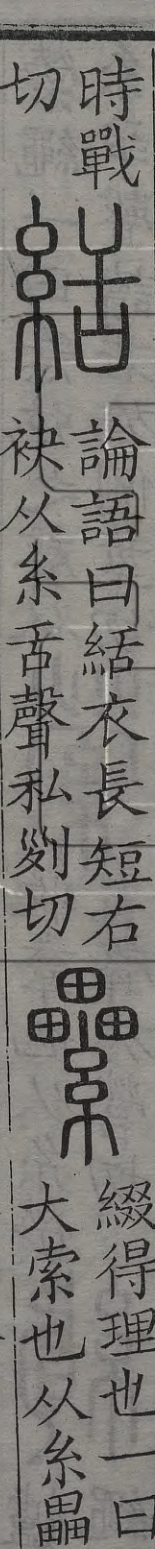 時戰切
絬
論語曰絬衣長短右袂从糸舌聲私列切
纍
綴得理也一曰大索也从糸畾